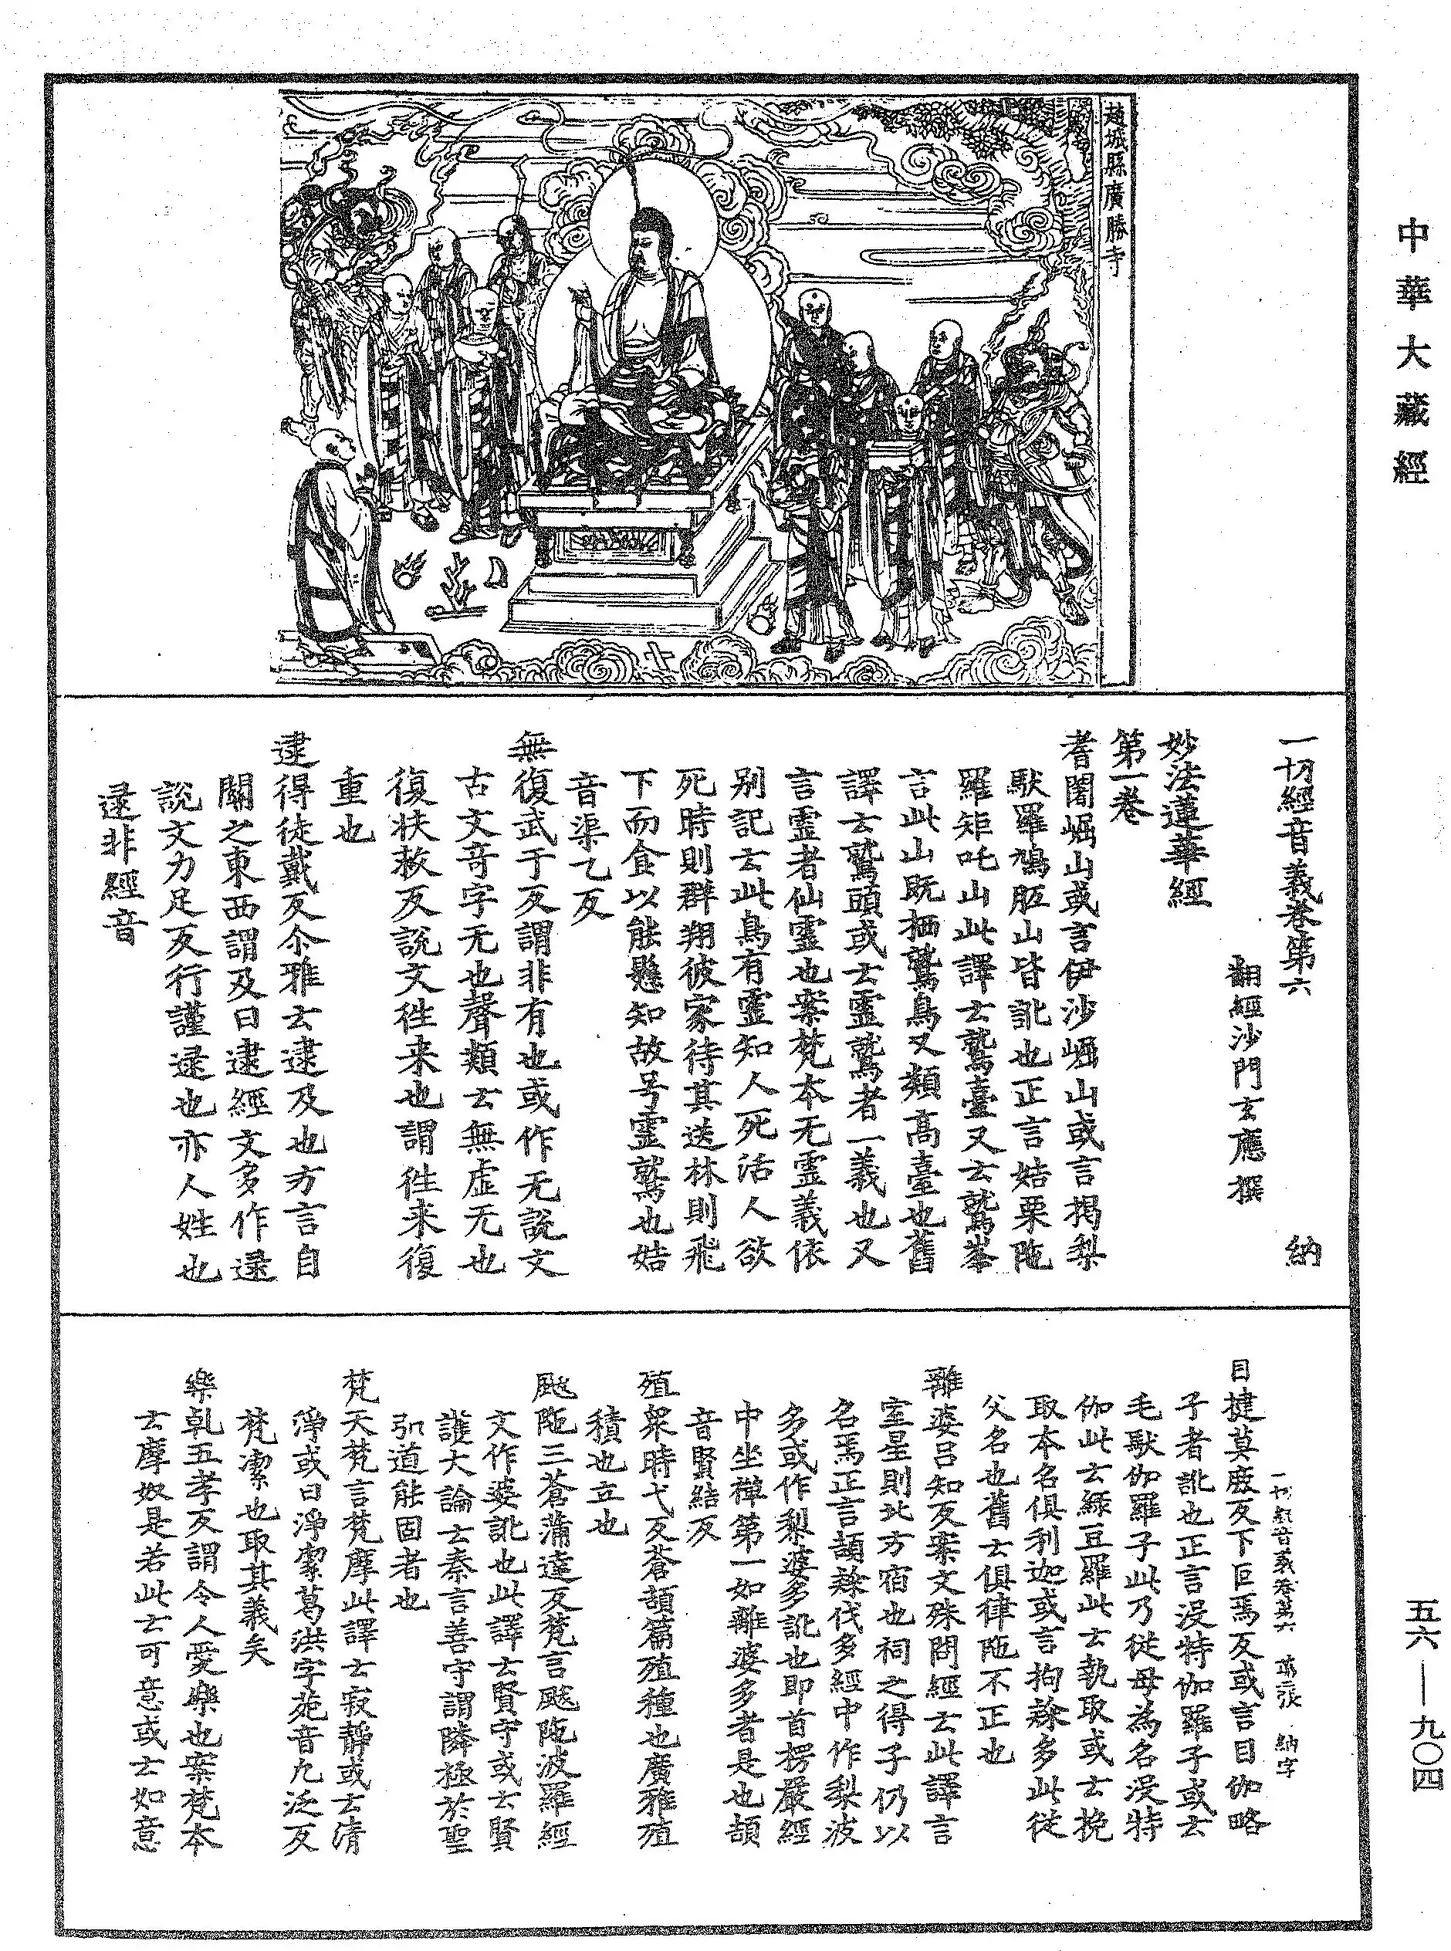 中華大藏經
趙城縣廣勝寺
一切經音義卷第六 納
翻經沙門玄應撰
妙法蓮華經
第一卷
耆闍崛山或言伊沙崛山或言揭梨
馱羅鳩胝山皆訛也正言姞栗陁
羅矩吒山此譯云鷲臺又云鷲峯
言此山既栖鷲鳥又類高臺也舊
譯云鷲頭或云靈鷲者一義也又
言靈者仙靈也案梵本无靈義依
別記云此鳥有靈知人死活人欲
死時則群翔彼家待其送林則飛
下而食以能懸知故号靈鷲也姞
音渠乙反
無復武于反謂非有也或作无說文
古文奇字无也聲類云無虛无也
復扶救反說文徃来也謂徃来復
重也
逮得徒戴反尒雅云逮及也方言自
關之東西謂及曰逮經文多作逯
說文力足反行謹逯也亦人姓也
逯非經音
一切經音義卷第六 第二張 納字
目揵莫鹿反下巨焉反或言目伽略
子者訛也正言没特伽羅子或云
毛馱伽羅子此乃從母為名没特
伽此云綠豆羅此云執取或云挽
取本名俱利迦或言拘隸多此從
父名也舊云俱律陁不正也
離婆呂知反案文殊問經云此譯言
室星則北方宿也祠之得子仍以
名焉正言頡隸伐多經中作梨波
多或作梨婆多訛也即首楞嚴經
中坐禪第一如離婆多者是也頡
音賢結反
殖眾時弋反蒼頡篇殖種也廣雅殖
積也立也
颰陁三蒼蒲達反梵言颰陁波羅經
文作婆訛也此譯云賢守或云賢
護大論云秦言善守謂隣極於聖
引道能固者也
梵天梵言梵摩此譯云寂靜或云清
淨或曰淨潔葛洪字苑音九泛反
梵潔也取其義矣
樂乹五孝反謂令人愛樂也案梵本
云摩奴是若此云可意或云如意
五六—九〇四